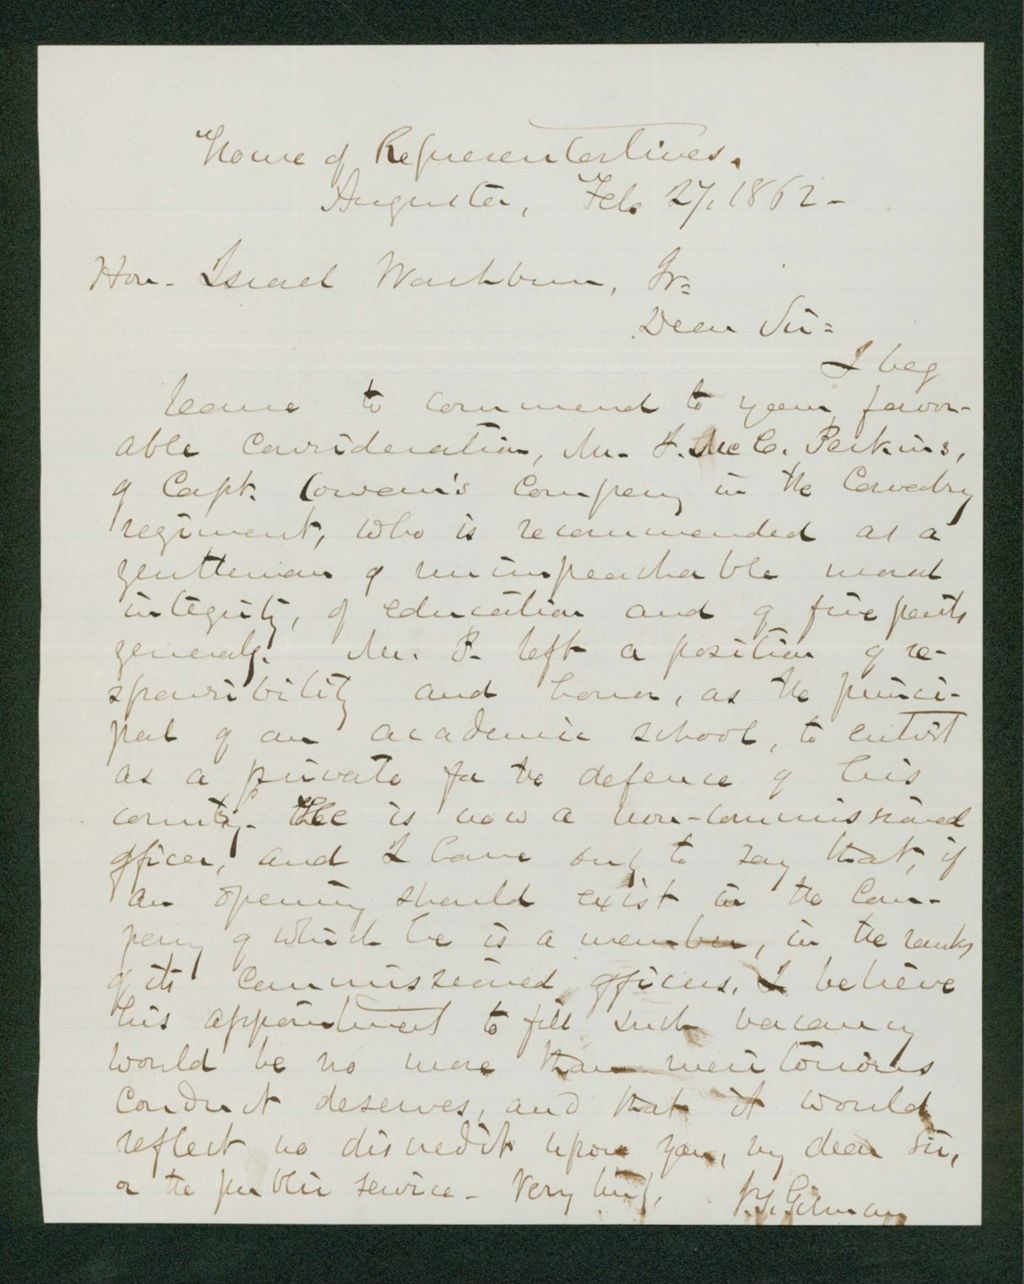 House of Representatives.
Augusta, Feb. 27, 1862-
Hon. Israel Washburn, Jr=
Dear Sir=
I beg
leave to commend to your favor-
able consideration, Mr. F. McC. Perkins,
of Capt. Cowen's Company in the Cavalry
regiment, who is recommended as a
gentleman of unimpeachable moral
integrity, of education and of fine parts
generally. Mr. P. left a position of re-
sponsibility and honor, as the princi-
pal of an academic school, to enlist
as a private for the defence of his
country. He is now a non-commissioned
officer, and I have only to say that, if
an opening should exist in the Com-
pany of which he is a member, in the ranks
of its commissioned officers, I believe
his appointment to fill such vacancy
would be no more than meritorious
conduct deserves, and that it would
reflect no discredit upon you, my dear Sir,
or the public service- Very truly,
Gilman